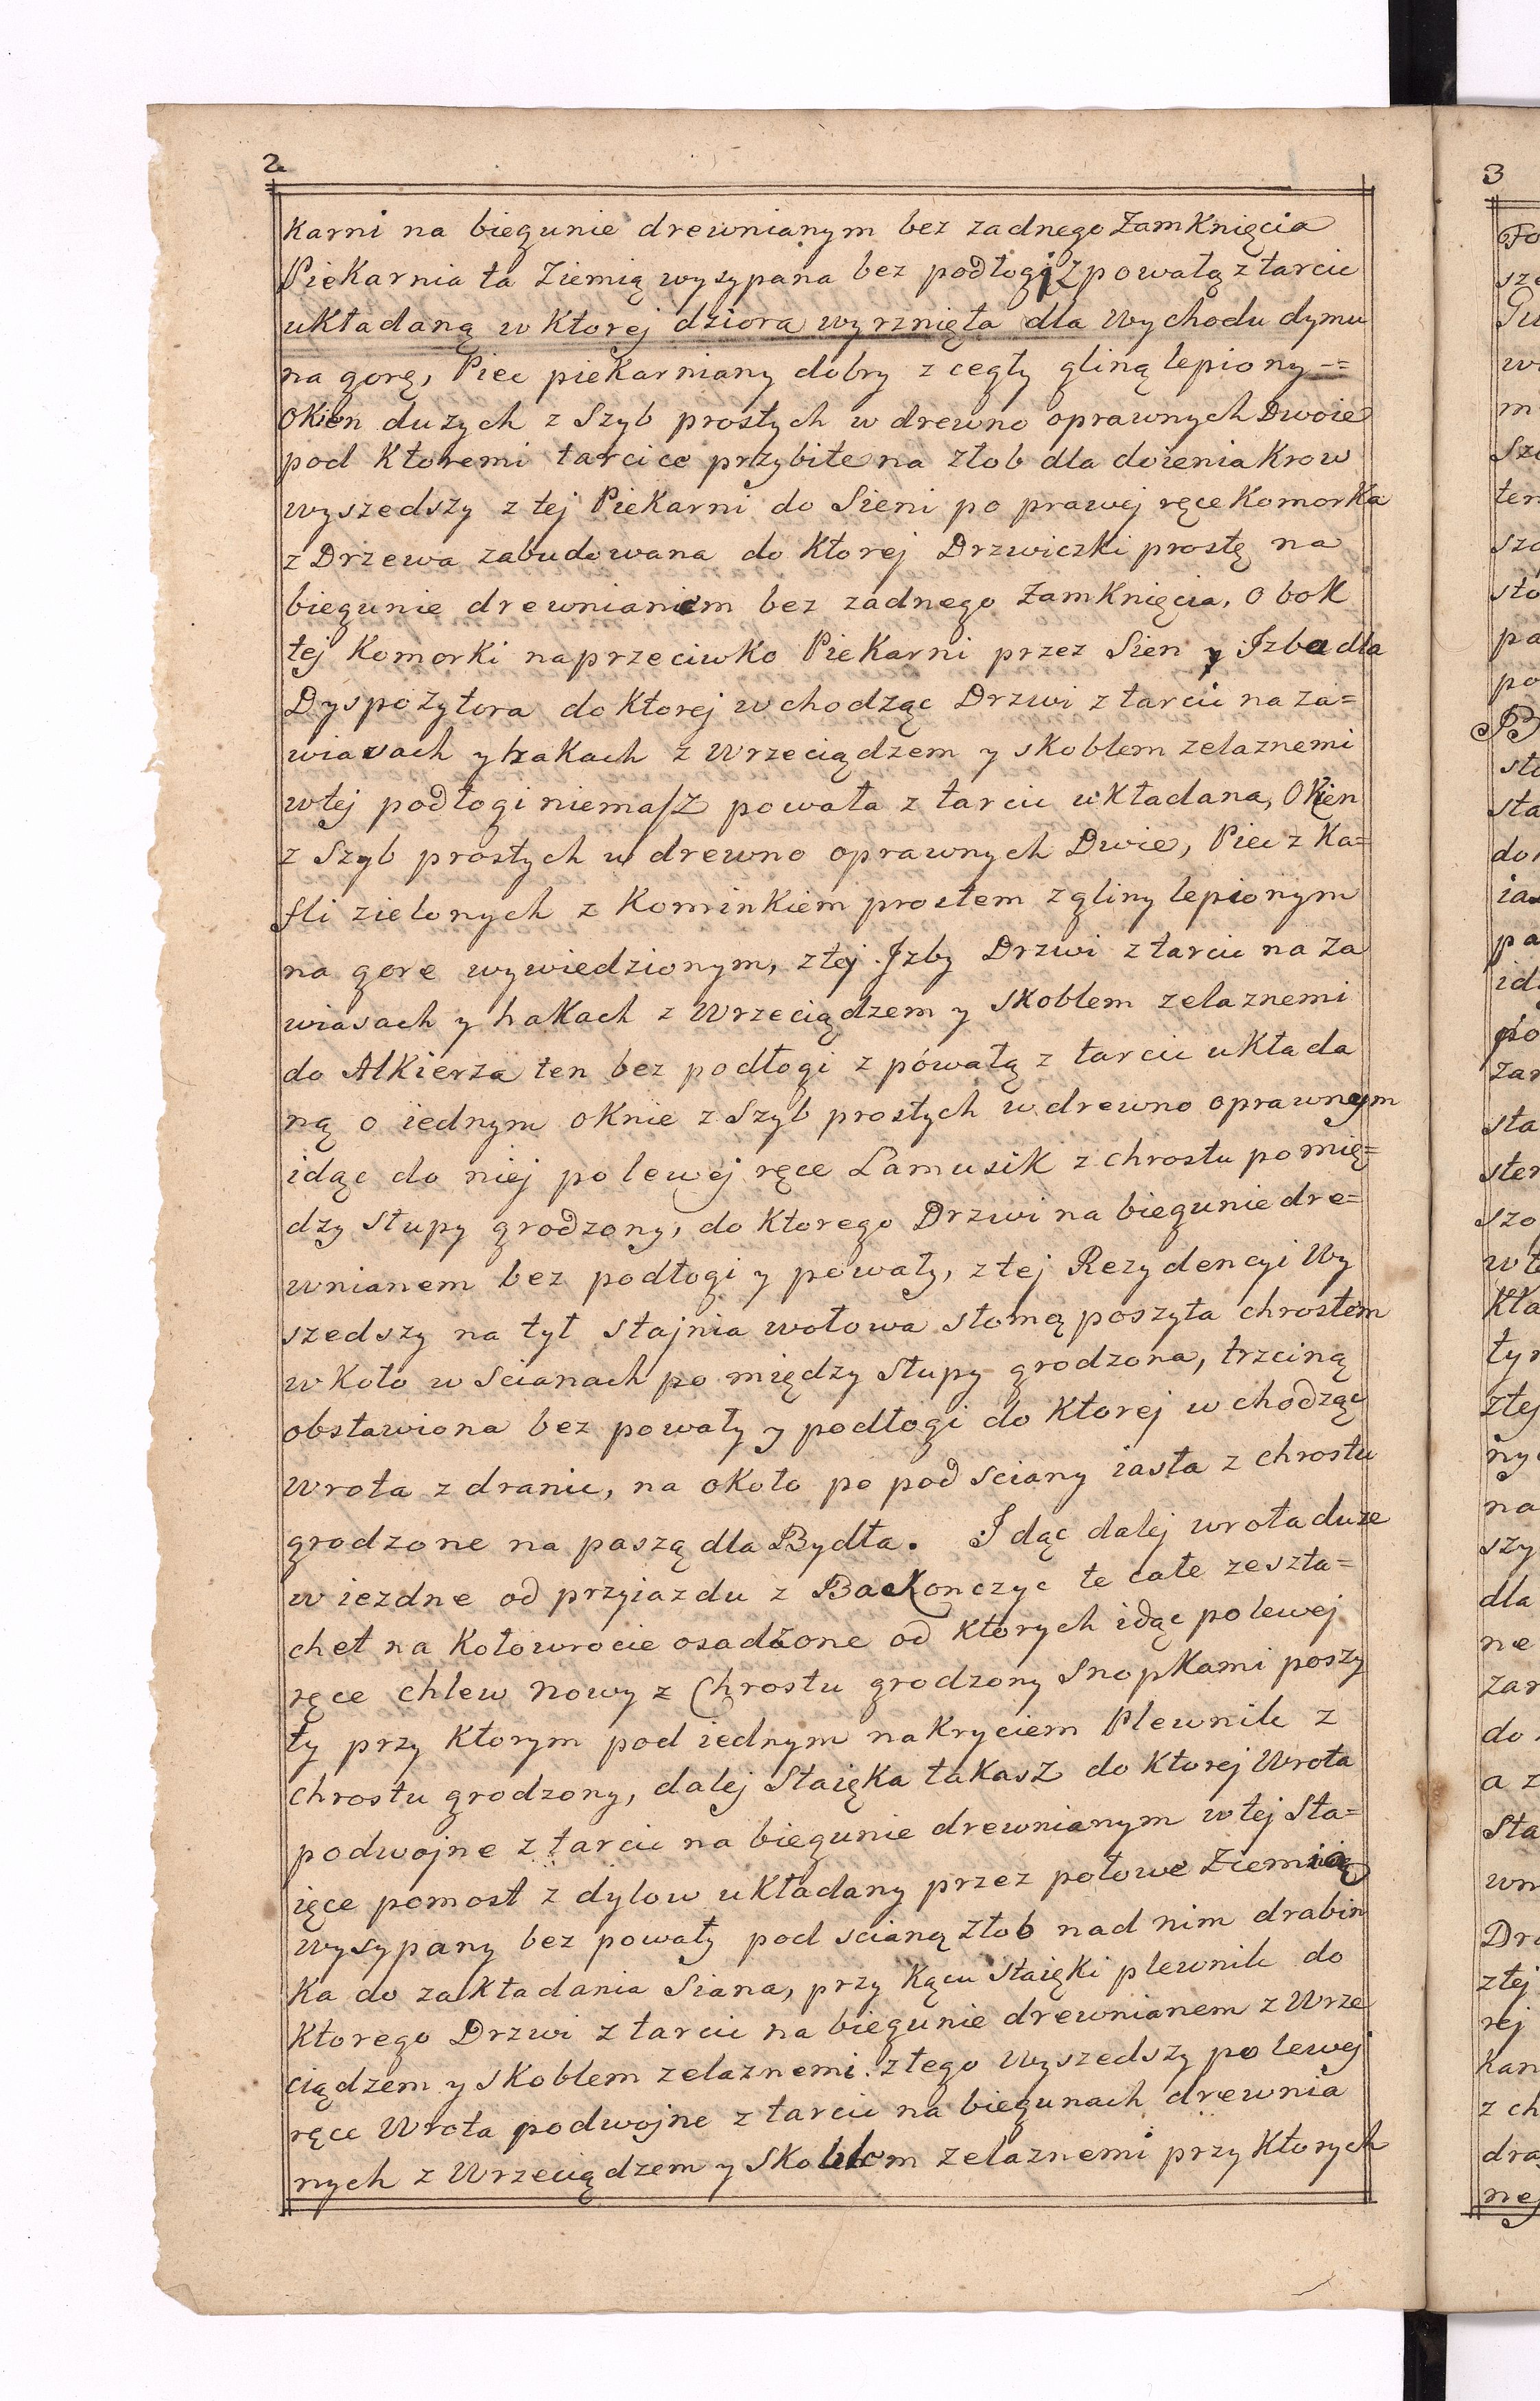 2
Karni na biegunie drewnianym bez zadnego Zamknięcia
Piekarnia ta Ziemią wysypana bez podłogi z powałą z tarcic
układaną w ktorej dziora wyrznięta dla Wychodu dymu
na gorę, Piec piekarniany dobry z cegły gliną lepiony -=
Okien duzych z Szyb prostych w drewno oprawnych Dwoie
pod Ktoremi tarcice przybite na złob dla doienia Krow
wyszedszy z tej Piekarni do Sieni po prawej ręce Komorka
z Drzewa zabudowana do Ktorej Drzwiczki prostę na
biegunie drewnianem bez zadnego Zamknięcia, Obok
tej Komorki naprzeciwko Piekarni przez Sien y Izba dla
Dyspozytora do Ktorej wchodząc Drzwi z tarcic na za=
wiasach y hakach z Wrzeciądzem y skoblem zelaznemi
w tej podłogi niemasz powała z tarcic układana, Okien
z Szyb prostych w drewno oprawnych Dwie, Piec z Ka=
fli zielonych z Kominkiem prostem z gliny lepionym
na gore wywiedzionym, z tej Izby Drzwi z tarcic na Za
wiasach y hakach z Wrzeciądzem y Skoblem zelaznemi
do Alkierza ten bez podłogi z pówałą z tarcic układa
ną o iednym oknie z Szyb prostych w drewno oprawnym
idąc do niej po lewej ręce Lamusik z chrostu pomię=
dzy słupy grodzony, do Ktorego Drzwi na biegunie dre=
wnianem bez podłogi y powały, z tej Rezydencyi Wy
szedszy na tył stajnia wołowa słomą poszyta chrostem
w Koło w Scianach po między Słupy grodzona, trzciną
obstawiona bez powały y podłogi do Ktorej wchodząc
Wrota z dranic, na około po pod sciany iasła z chrostu
grodzone na paszą dla Bydła. Idąc dalej wrota duze
wiezdne od przyiazdu z Bakonczyc te całe ze szta=
chet na Kołowrocie osadzone od Ktorych idąc po lewej
ręce chlew nowy z Chrostu grodzony Snopkami poszy
ty przy Ktorym pod iednym nakryciem Plewnik z
chrostu grodzony, dalej Staięka takasz do Ktorej Wrota
podwojne z tarcic na biegunie drewnianym w tej Sta=
ięce pomost z dylow układany przez połowe Ziemią
wysypany bez powały pod scianą złob nad nim drabin
Ka do zakładania Siana, przy Kącu staięki plewnik do
Ktorego Drzwi z tarcic na biegunie drewnianem z Wrze
ciądzem y skoblem zelaznemi. z tego Wyszedszy po lewej
ręce Wrota podwojne z tarcic na biegunach drewnia
nych z Wrzeciądzem y Skoblem zelaznemi przy Ktorych
3